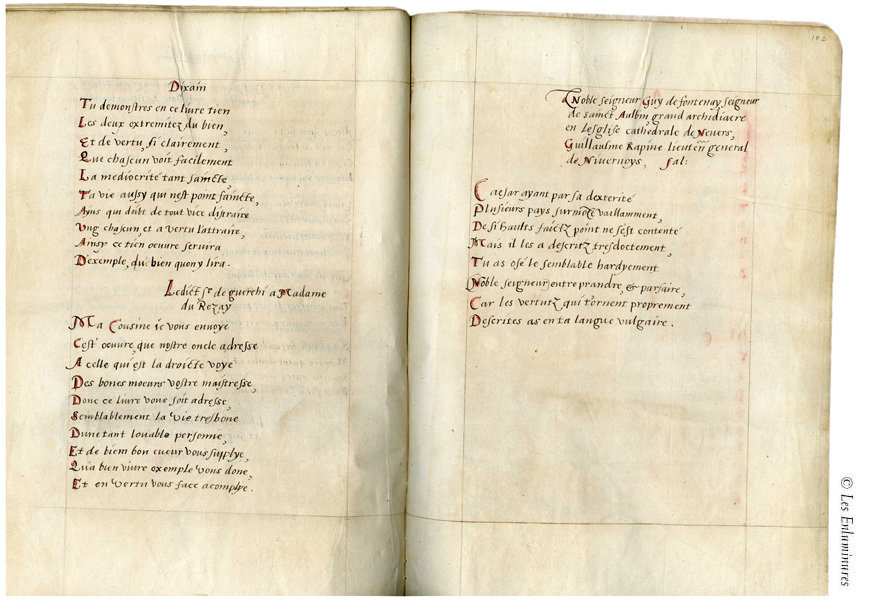 Dixain
Tu demonstres en ce livre tien
Les deux extremitez du bien,
Et de vertu, si clairement,
Que chascun voit facilement
La mediocrité tant saincte,
Ta vie aussy qui nest point faincte,
Ayns qui duite de tout vice distraire
Ung chascun, et a vertu l'attraire,
Ainsy ce tien oeuvre servira
D'exemple, du bien quon y lira.
Ledict Sr de guerchi a Madame
du Rezay
Ma Cousine ie vous envoye
C'est oeuvre, que nostre oncle adresse
A celle qui est la droicte voye
Des bones moeurs vostre maistresse,
Donc ce livre vous soit adresse,
Semblablement la vie tresbone
Dune tant louable personne,
Et de biem bon cueur vous supplye,
Qu'a bien vivre exemple vous done,
Et en vertu vous face acomplye.
102
A Noble seigneur Guy de fontenay, seigneur
de sainct Aulbin, grand archidiacre
en lesglise cathedrale de Nevers,
Guillaulme Rapine lieutenn general
de Nivernoys, sal:
Caesar ayant par sa dexterité
Plusieurs pays surmote vaillamment,
De si haults faictz point ne sest contenté
Mais il les a descritz tresdoctement,
Tu as osé le semblable hardyement
Noble seigneur entreprandre, & parfaire,
Car les vertutz qui t'ornent proprement
Descrites as en ta langue vulgaire.
© Les Enluminures